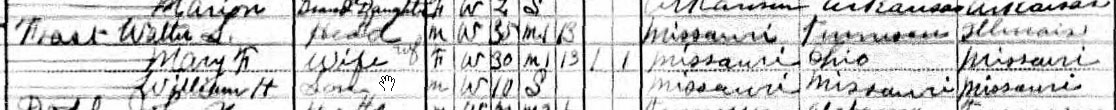 Marion Grand Daughter F W 2 S Arkansas Arkansas Arkansas
Frost Walter S. Head M W 35 M 1 13 Missouri Tennessee Illinois
Mary F Wife F W 30 M 1 13 1 1 Missouri Ohio Missouri
William H Son M W 10 S Missouri Missouri Missouri